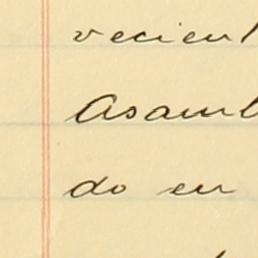 recient
Asaml
do en